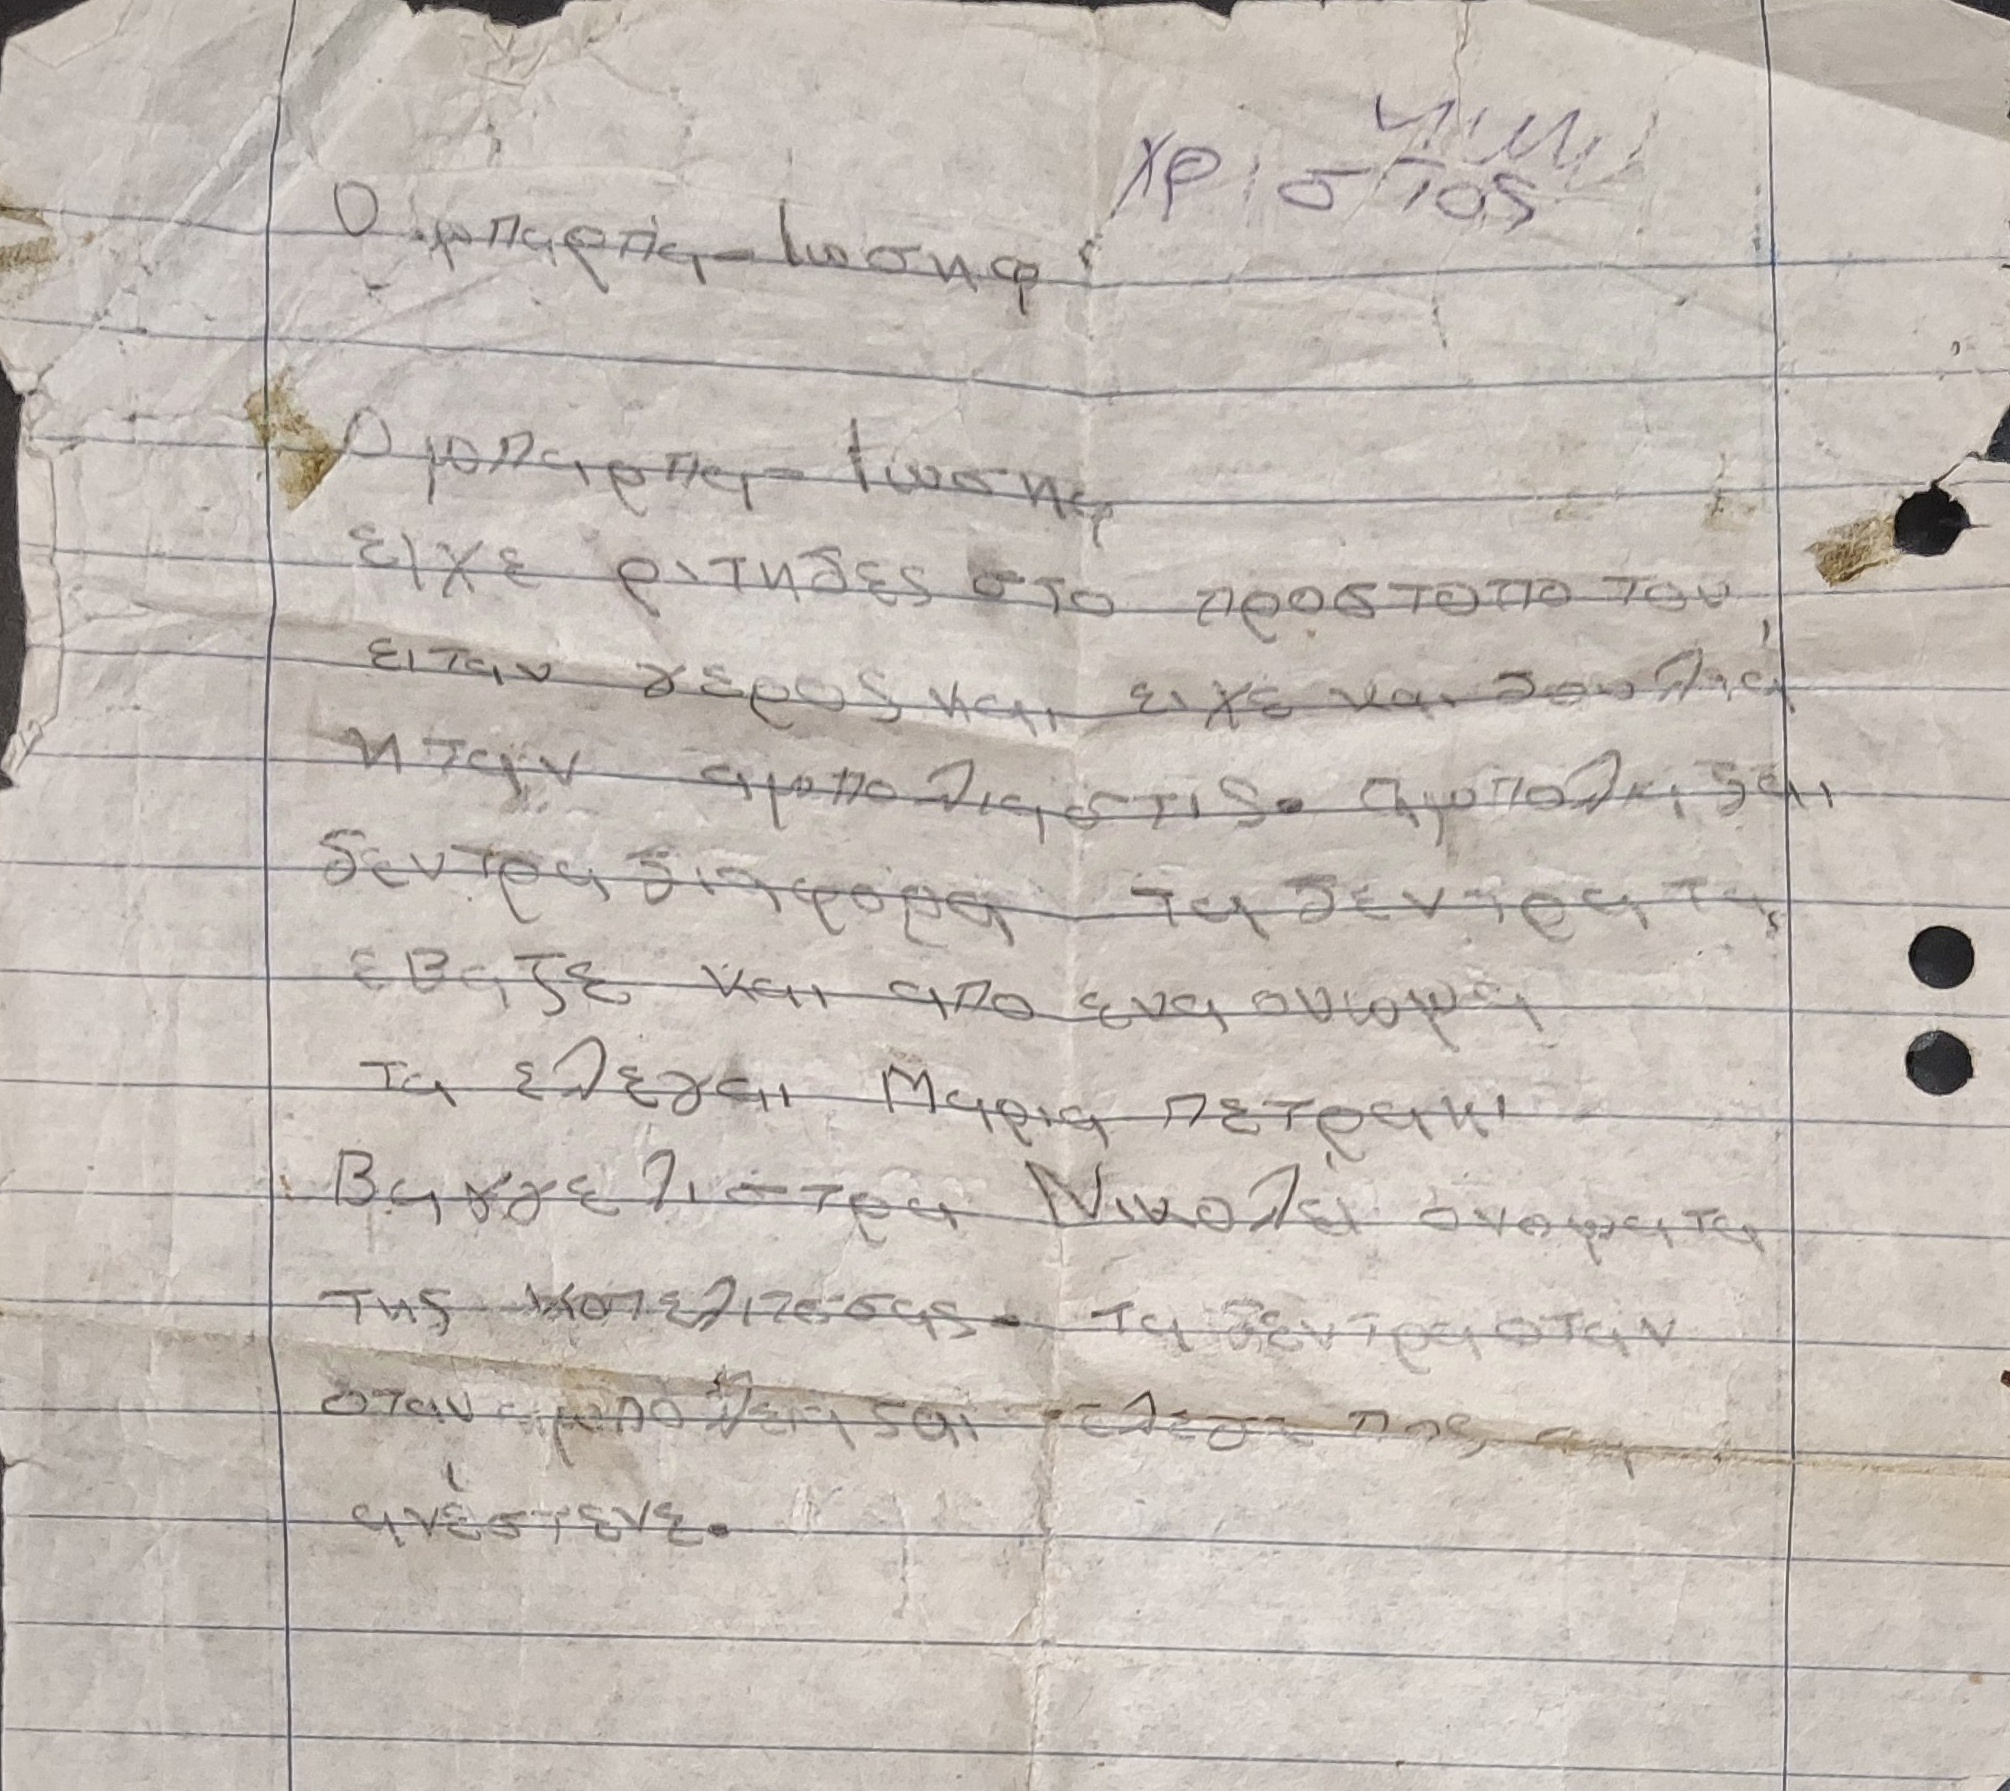 χριστος
Ο μπαρπα-Ιωσηφ
Ο μπαρπα-Ιωσηφ
ειχε ριτηδες στο προστοπο του
ειταν γερος και ειχε και δουλια
ηταν αμπολιαστις. αμπολιαζαι
δεντρα διαφορα τα δεντρα τα
εβαζε και απο ενα ονομα
τα ελεγαι Μαρια πετρακι
Βαγγελιστρα Νικολει ονοματα
της κοπελιτσας. τα δεντρα οταν
οταν αμπολειαζαι ελεγε πος
ανέστενε.